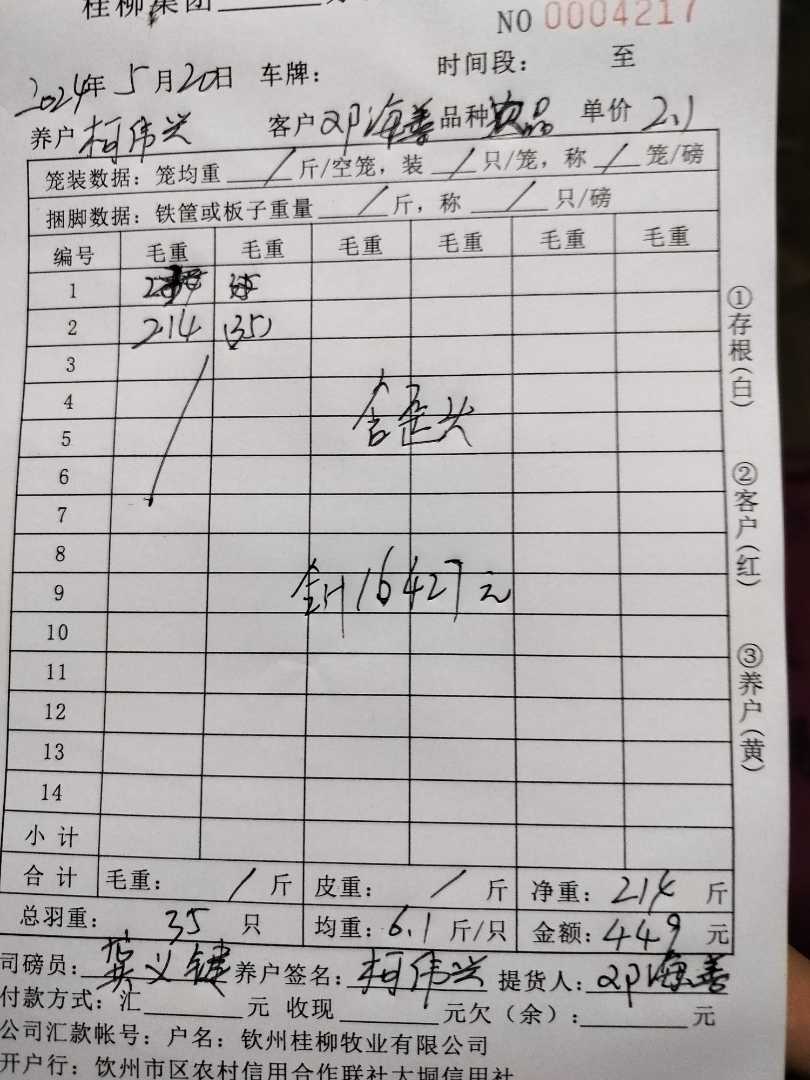 桂柳集团
NO 0004217
2024年5月20日 车牌： 时间段： 至
养户 柯伟兴 客户 邓海善 品种 次品 单价 2.1
笼装数据：笼均重 / 斤/空笼，装 / 只/笼，称 / 笼/磅
捆脚数据：铁筐或板子重量 / 斤，称 / 只/磅
编号 毛重 毛重 毛重 毛重 毛重 毛重
1
2 214 (35)
3
4
含歪头
5
6
7
8
9
合计16427元
10
11
12
13
14
小计
合计 毛重： / 斤 皮重： / 斤 净重：214 斤
总羽重： 35 只 均重：6.1 斤/只 金额：449 元
司磅员：龚义键 养户签名：柯伟兴 提货人：邓海善
付款方式：汇 元 收现 元欠（余）： 元
公司汇款帐号：户名：钦州桂柳牧业有限公司
开户行：钦州市区农村信用合作联社大垌信用社
①存根(白) ②客户(红) ③养户(黄)